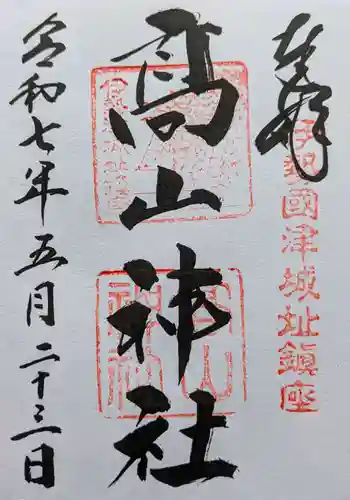 奉拝
伊勢國津城址鎮座
高山神社
令和七年五月二十三日